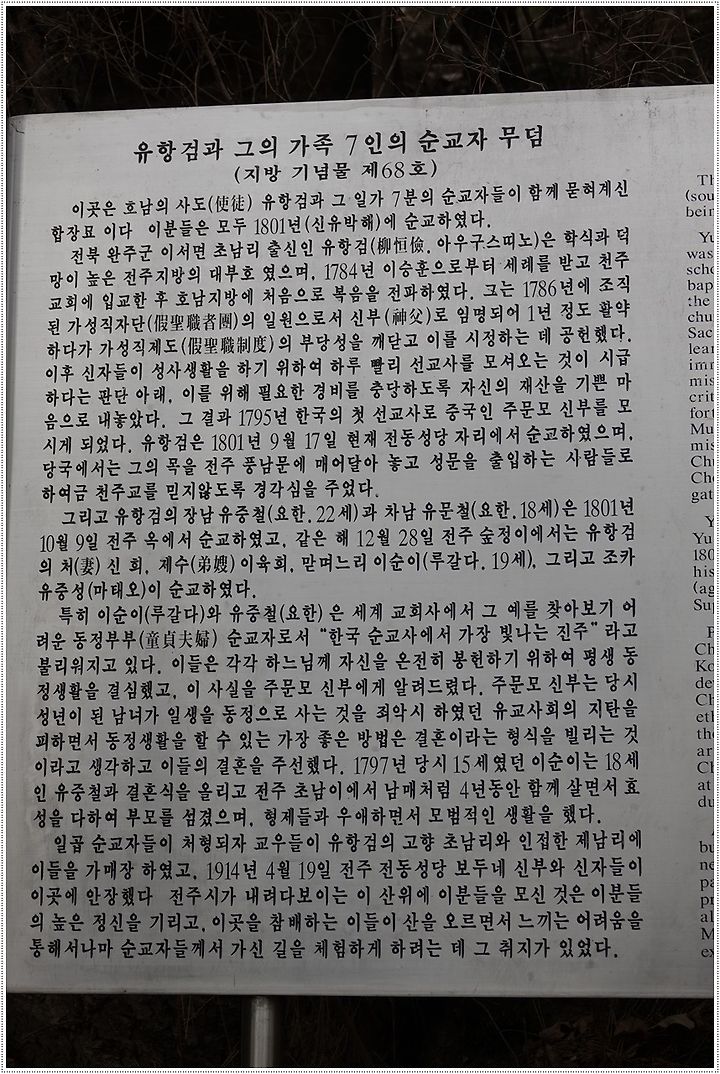 유항검과 그의 가족 7인의 순교자 무덤
(지방 기념물 제68호)
이곳은 호남의 사도(使徒) 유항검과 그 일가 7분의 순교자들이 함께 묻혀계신
합장묘 이다 이분들은 모두 1801년(신유박해)에 순교하였다.
전북 완주군 이서면 초남리 출신인 유항검(柳恒儉, 아우구스띠노)은 학식과 덕
망이 높은 전주지방의 대부호 였으며, 1784년 이승훈으로부터 세례를 받고 천주
교회에 입교한 후 호남지방에 처음으로 복음을 전파하였다. 그는 1786년에 조직
된 가성직자단(假聖職者團)의 일원으로서 신부(神父)로 임명되어 1년 정도 활약
하다가 가성직제도(假聖職制度)의 부당성을 깨닫고 이를 시정하는 데 공헌했다.
이후 신자들이 성사생활을 하기 위하여 하루 빨리 선교사를 모셔오는 것이 시급
하다는 판단 아래, 이를 위해 필요한 경비를 충당하도록 자신의 재산을 기쁜 마
음으로 내놓았다. 그 결과 1795년 한국의 첫 선교사로 중국인 주문모 신부를 모
시게 되었다. 유항검은 1801년 9월 17일 현재 전동성당 자리에서 순교하였으며,
당국에서는 그의 목을 전주 풍남문에 매어달아 놓고 성문을 출입하는 사람들로
하여금 천주교를 믿지않도록 경각심을 주었다.
그리고 유항검의 장남 유중철(요한, 22세)과 차남 유문철(요한, 18세)은 1801년
10월 9일 전주 옥에서 순교하였고, 같은 해 12월 28일 전주 숲정이에서는 유항검
의 처(妻) 신 희, 제수(弟嫂) 이육희, 맏며느리 이순이(루갈다, 19세), 그리고 조카
유중성(마태오)이 순교하였다.
특히 이순이(루갈다)와 유중철(요한) 은 세계 교회사에서 그 예를 찾아보기 어
려운 동정부부(童貞夫婦) 순교자로서 "한국 순교사에서 가장 빛나는 진주" 라고
불리워지고 있다. 이들은 각각 하느님께 자신을 온전히 봉헌하기 위하여 평생 동
정생활을 결심했고, 이 사실을 주문모 신부에게 알려드렸다. 주문모 신부는 당시
성년이 된 남녀가 일생을 동정으로 사는 것을 죄악시 하였던 유교사회의 지탄을
피하면서 동정생활을 할 수 있는 가장 좋은 방법은 결혼이라는 형식을 빌리는 것
이라고 생각하고 이들의 결혼을 주선했다. 1797년 당시 15세였던 이순이는 18세
인 유중철과 결혼식을 올리고 전주 초남이에서 남매처럼 4년동안 함께 살면서 효
성을 다하여 부모를 섬겼으며, 형제들과 우애하면서 모범적인 생활을 했다.
일곱 순교자들이 처형되자 교우들이 유항검의 고향 초남리와 인접한 제남리에
이들을 가매장 하였고, 1914년 4월 19일 전주 전동성당 보두네 신부와 신자들이
이곳에 안장했다 전주시가 내려다보이는 이 산위에 이분들을 모신 것은 이분들
의 높은 정신을 기리고, 이곳을 참배하는 이들이 산을 오르면서 느끼는 어려움을
통해서나마 순교자들께서 가신 길을 체험하게 하려는 데 그 취지가 있었다.